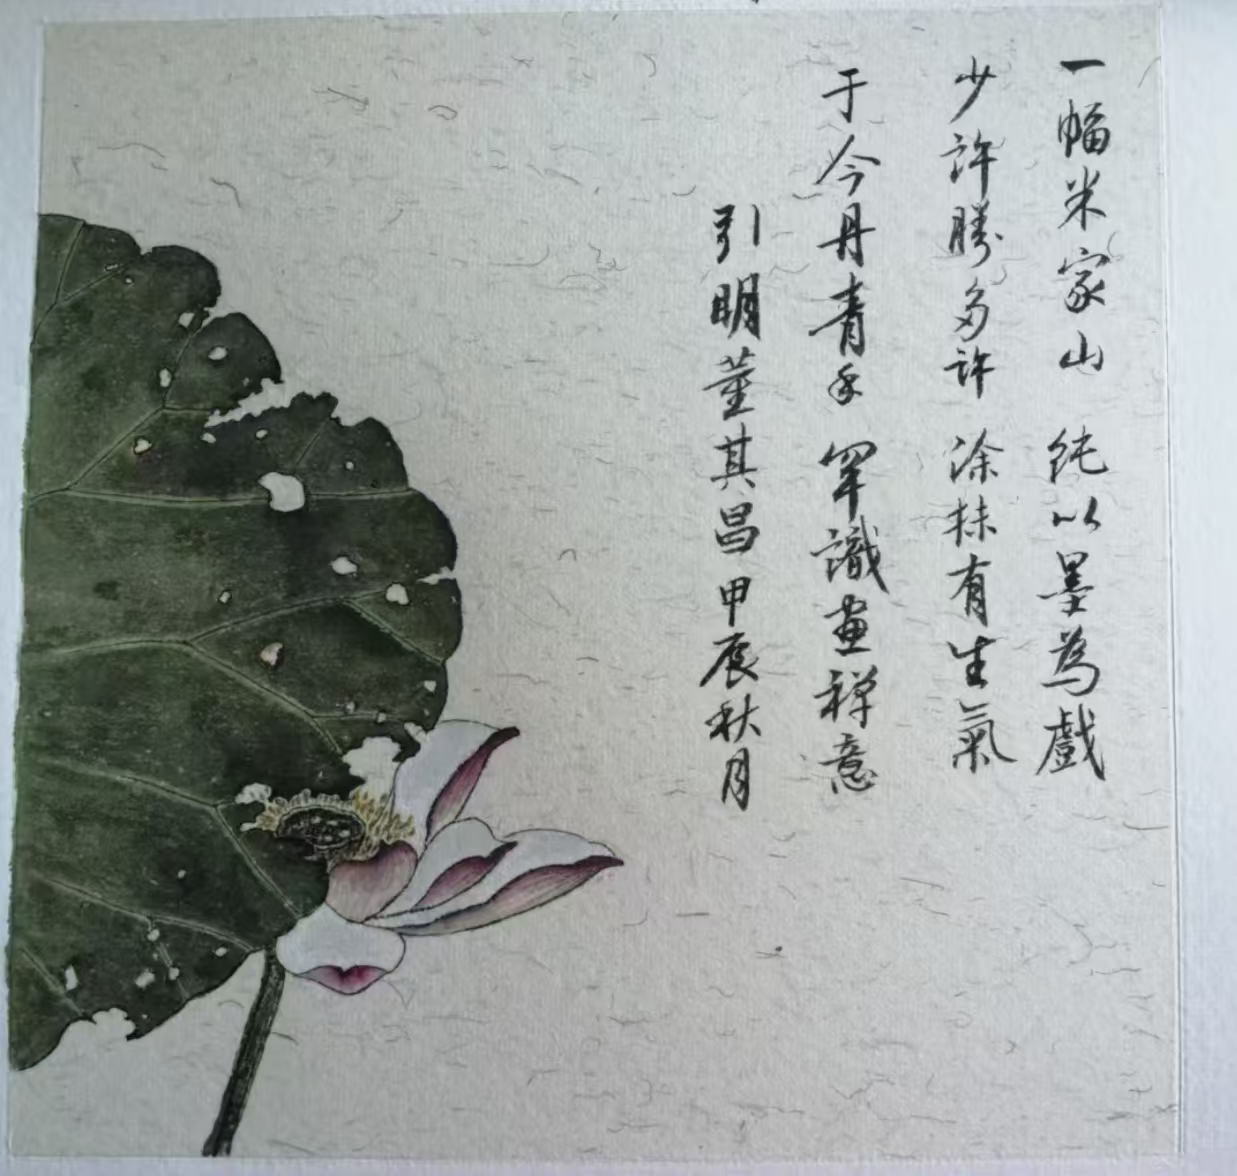 一幅米家山 純以墨為戲
少許勝多許 涂抹有生氣
于今丹青手 罕識畫禪意
引明董其昌甲辰秋月